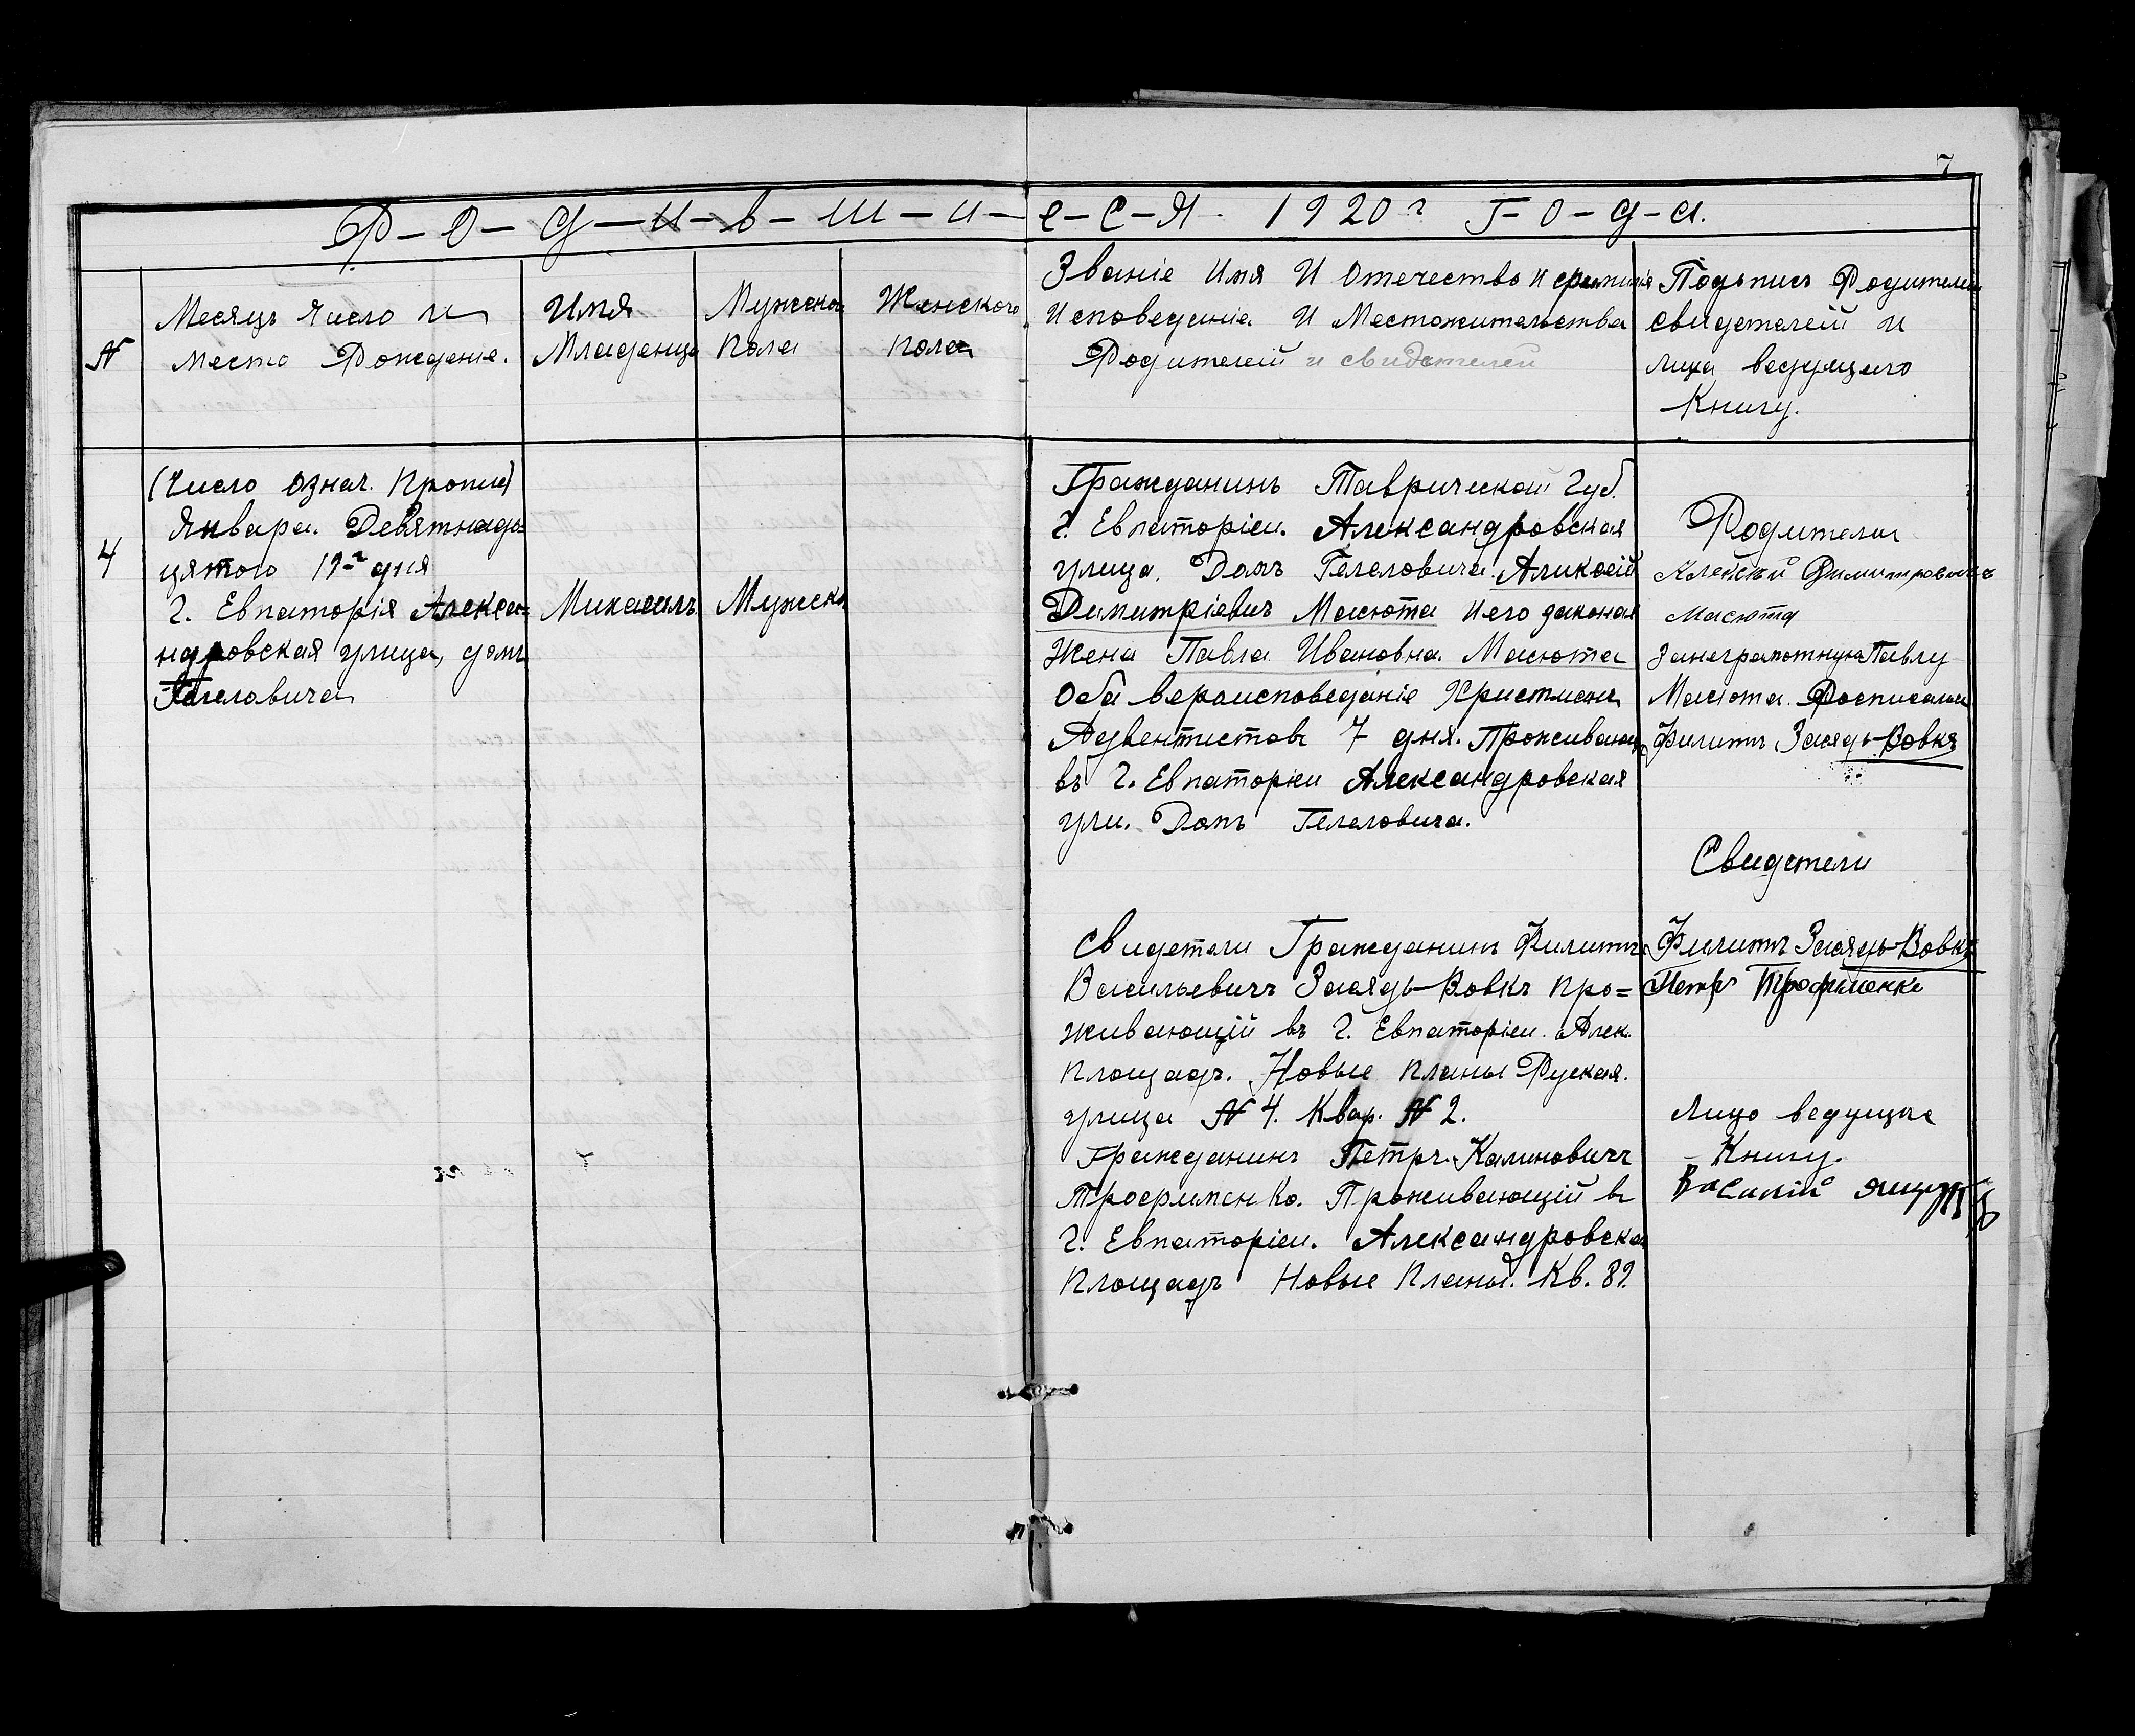 7
Р-О-Д-И-В-Ш-И-Е-С-Я 1920г Г-О-Д-А.
N
Месяцъ Число и
Место Рожденіе.
Имя
Младенца
Мужеска
Пола
Женского
пола
Званіе Имя И Отечество и фамилія
Исповеданіа И Местожительства
Родителей и свидетелей
Подъпись Родителей
свидетелей и
лица ведущего
Книгу.
4
(Число Означ. Пропис)
Января. Девятнадь=
цятого 19-г дня
г. Евпаторія Алекса=
ндровская улица, домъ
Гелеловича
Михаилъ
Мужска
Гражданинъ Таврической Губ.
г. Евпаторіи. Александровская
улица. Домъ Гелеловича. Аликсій
Димитріевич Масюта и его законая
Жена Павла Ивановна. Масюта
Оба вероисповеданіе Христиане
Адвентистовъ 7 дня. Проживающ
въ г. Евпаторіи Александровская
ули. Домъ Гелеловича.
Свидетели Гражданинъ Филиппъ
Васильевичъ Заядь-Вовкъ про=
живающій въ г. Евпаторіи. Алек.
площадь. Новые планы Руская.
улица N 4. Квар. N 2.
Гражданинъ Петръ. Калиновичъ
Трофименко. Проживающій в
г. Евпаторіи. Александровска
Площадь Новые Планы. Кв. 89.
Родители
Димитровичъ
Масюта
За неграмотную Павлу
Масюта. Росписался
Филиппъ Заядь-Вовкъ
Свидетели
Филиппъ Заядь-Вовкъ
Петръ Трофименко
Лицо ведущие
Книгу.
Василій